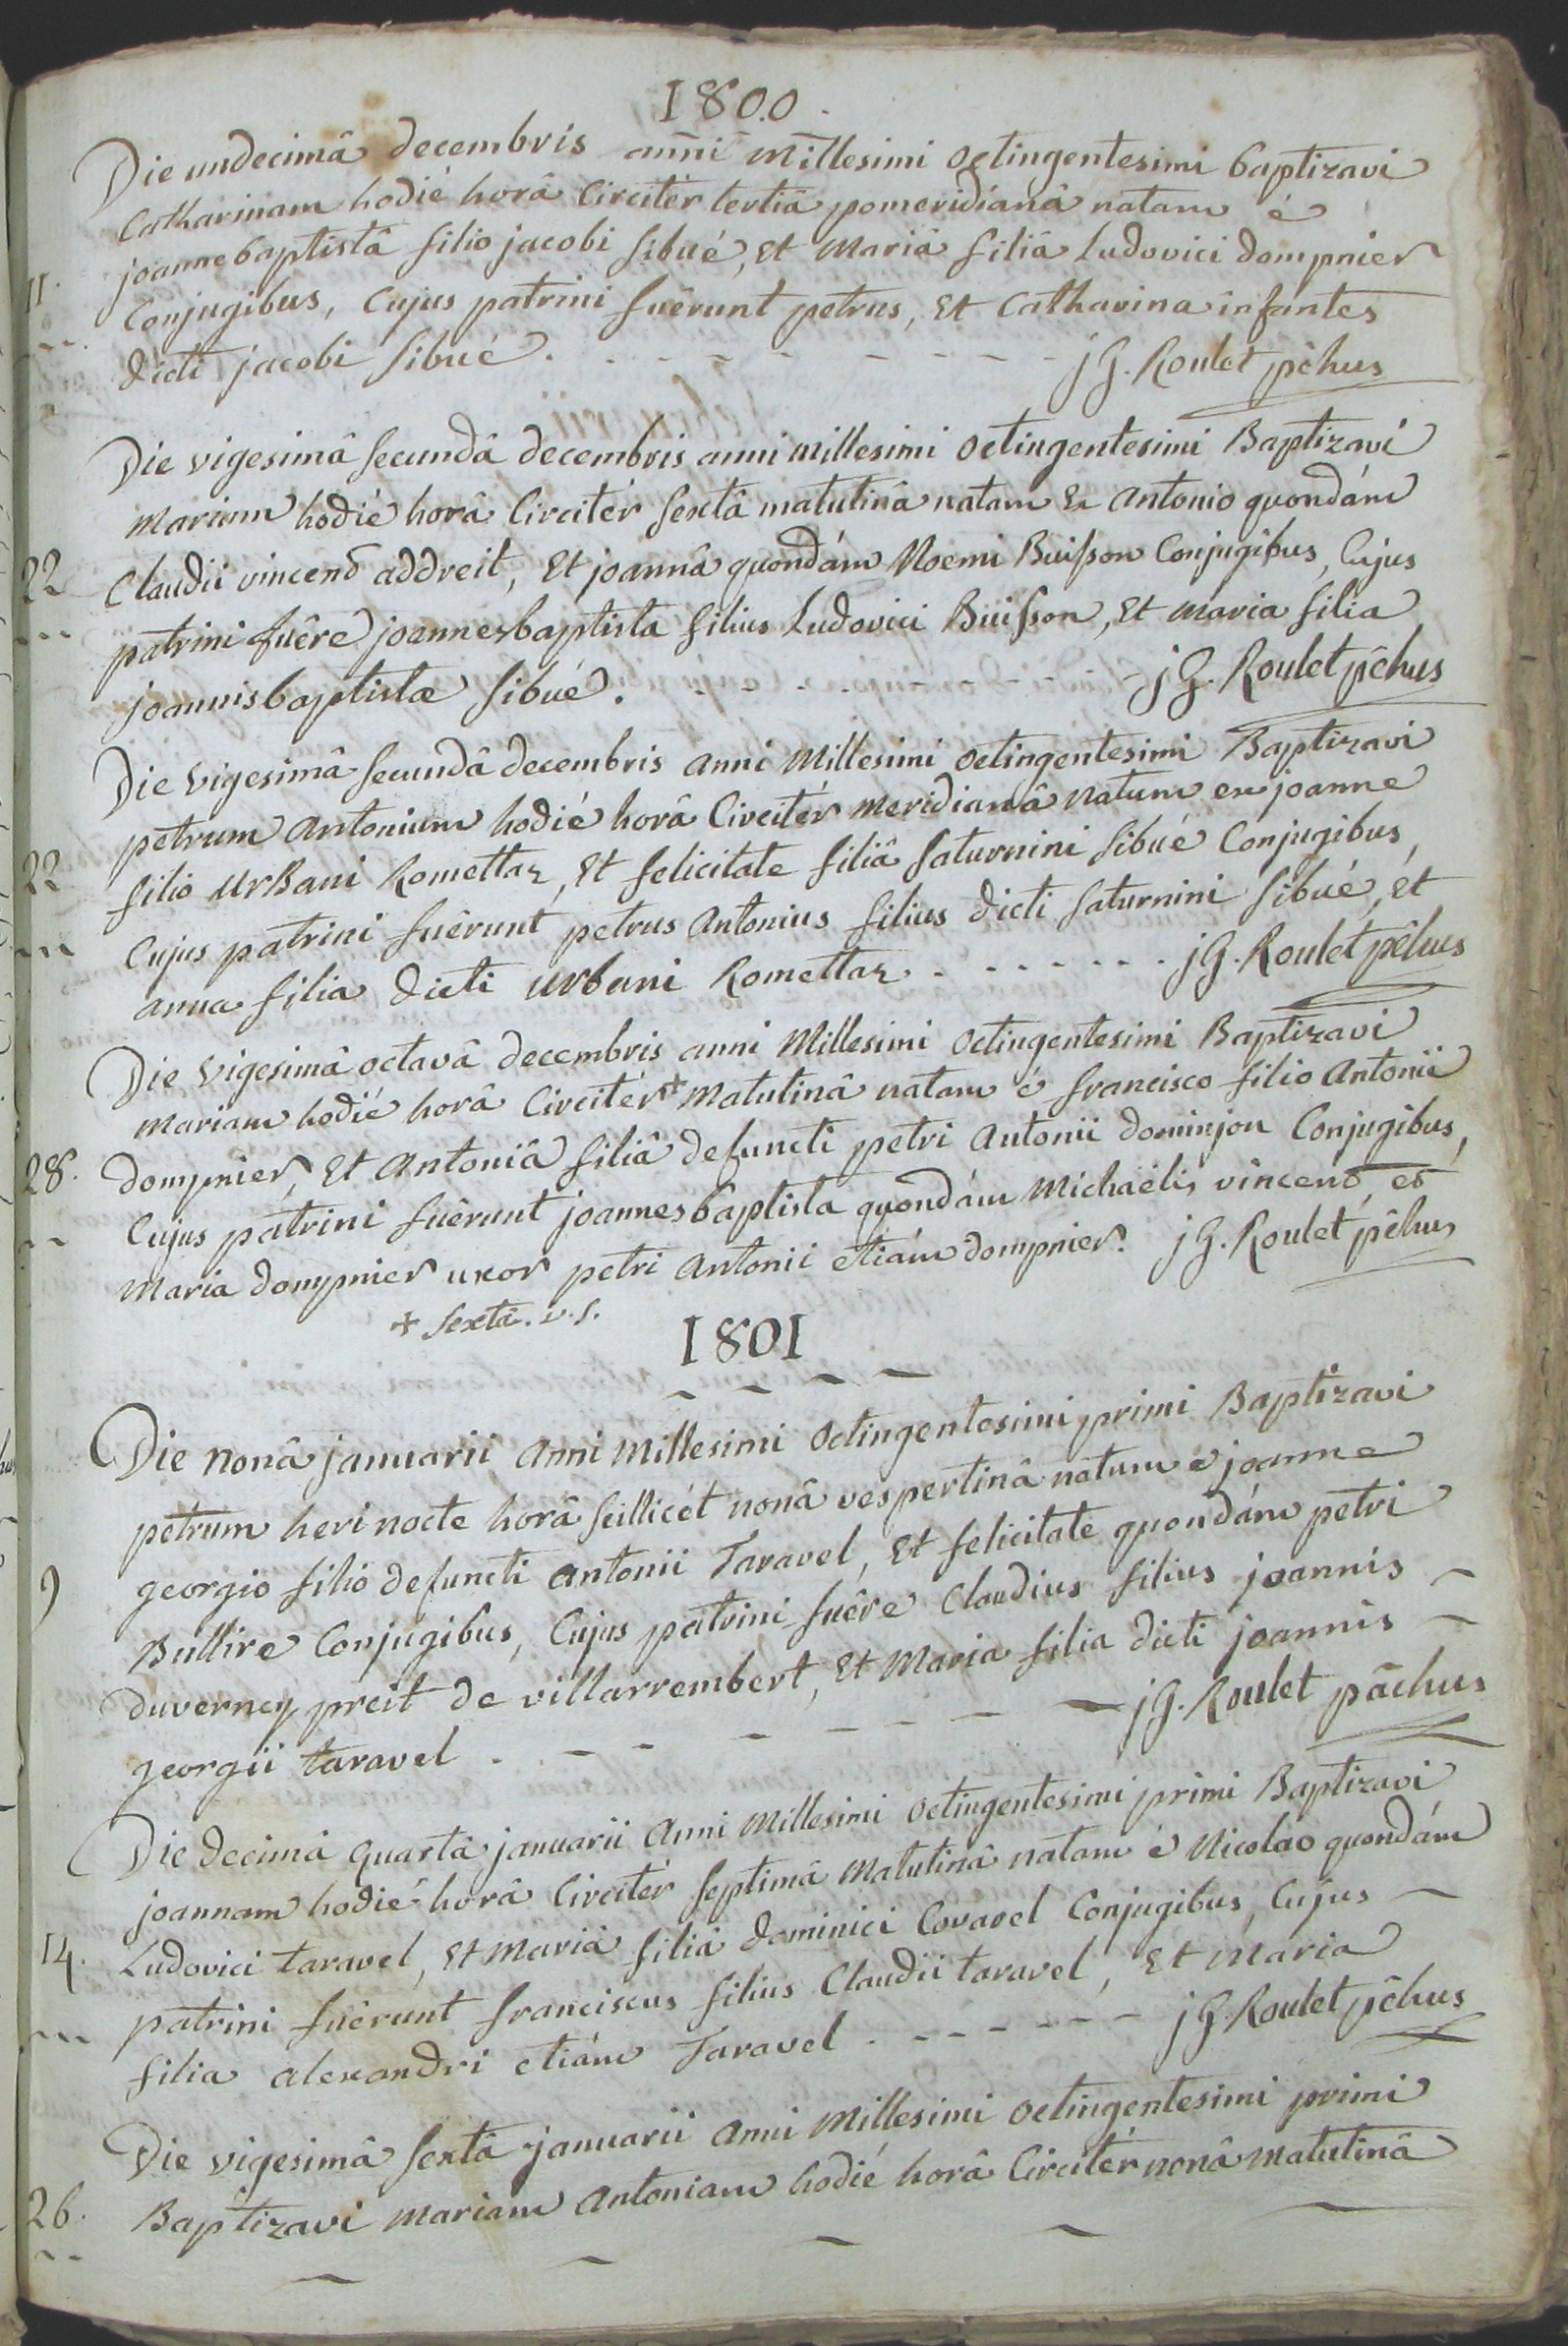 1800.
Die undecimâ decembris anni Millesimi octingentesimi baptizavi
Catharinam hodié horâ Circitér tertiâ pomeridianâ natam é
11. joannebaptistâ filio jacobi Sibué, et Mariâ filiâ Ludovici dompnier
Conjugibus, Cujus patrini fuêrunt petrus, et Catharina infantes
dicti jacobi Sibué. jG. Roulet pêhus
Die vigesimâ secundâ decembris anni millesimi octingentesimi Baptizavi
Mariam hodié horâ Circitér sextâ matutinâ natam Ex Antonio quondám
22 Claudii vincend addreit, Et joannâ quondám Noemi Buisson Conjugibus, Cujus
patrini fuêre joannesbaptista filius Ludovici Buisson, Et Maria filia
joannisbaptistæ Sibué. jG. Roulet pêhus
Die Vigesimâ secundâ decembris Anni Millesimi octingentesimi Baptizavi
petrum Antonium hodié horâ Circitér Meridianâ Natum ex joanne
22 filio Urbani Romettaz, Et felicitate filiâ Saturnini Sibué Conjugibus,
Cujus patrini fuêrunt petrus Antonius filius dicti Saturnini Sibué, Et
anna filia dicti Urbani Romettaz. jG. Roulet pêhus
Die Vigesimâ octavâ decembris anni Millesimi octingentesimi Baptizavi
Mariam hodié horâ Circitér + Matutinâ natam é francisco filio Antonii
28. dompnier, Et Antoniâ filiâ defuncti petri Antonii dominjon Conjugibus,
Cujus patrini fuêrunt joannesbaptista quondám Michaëlis vincend, et
Maria dompnier uxor petri Antonii etiám dompnier. jG. Roulet pêhus
+ sextâ. v. s.
1801
Die Nonâ januarii Anni Millesimi Octingentesimi primi Baptizavi
petrum heri nocte horâ scillicét nonâ vespertinâ natum é joanne
9 georgio filio defuncti Antonii Taravel, Et felicitate quondám petri
Bullire Conjugibus, Cujus patrini fuêre Claudius filius joannis
duverney preit de villarrembert, Et Maria filia dicti joannis
georgii taravel. jG. Roulet pâchus
Die decimâ quartâ januarii Anni Millesimi octingentesimi primi Baptizavi
joannam hodié horâ Circitér septimâ Matutinâ natam é Nicoláo quondám
14. Ludovici taravel, Et Mariâ filiâ dominici Covarel Conjugibus, Cujus
patrini fuêrunt franciscus filius Claudii taravel, Et Maria
filia alexandri etiám Taravel. jG. Roulet pêhus
Die vigesimâ sextâ januarii Anni Millesimi octingentesimi primi
26. Baptizavi Mariam Antoniam hodié horâ Circitér nonâ Matutinâ